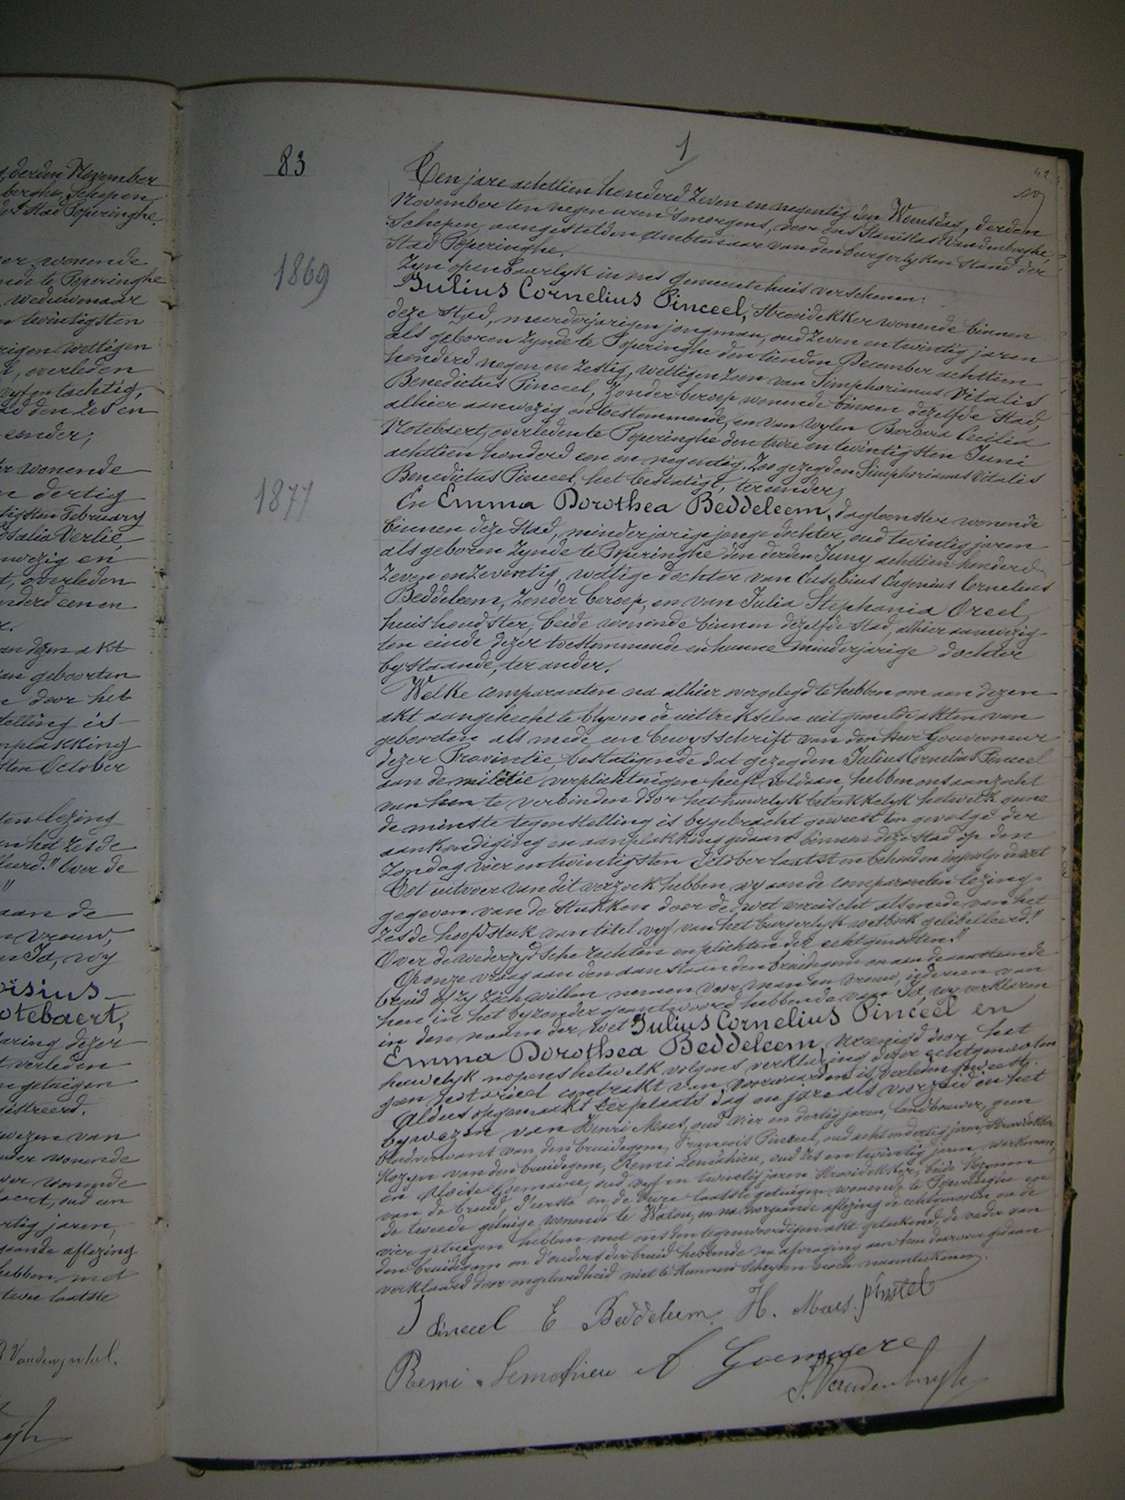 derden November
berghe, Schepen,
der Stad Poperinghe.
wonende
te Poperinghe
weduwnaar
twintigsten
wettigen
overleden
tachtig,
den zes en
eender;
wonende
dertig
February
Rosalia Verlie
en
overleden
een en
dezen akt
geboorten
door het
is
October
lezing
het zesde
Over de
aan de
vrouw,
Ja, wy
oisius
otebaert,
dezer
verleden
getuigen
wezen van
wonende
wonende
oud een
jaren,
aflezing
hebben met
laatste
83
1
1869
1877
Ten jare achttien honderd zeven en negentig den Woensdag, derden
November ten negen uren 's morgens, voor ons Stanislas Vandenberghe,
Schepen, aangestelden Ambtenaar van den burgerlyken Stand der
Stad Poperinghe,
Zyn openbaarlyk in ons gemeentehuis verschenen:
Julius Cornelius Pinceel, Stroidekker wonende binnen
deze Stad, meerderjarigen jongman, oud zeven en twintig jaren
als geboren zynde te Poperinghe den tienden December achttien
honderd negen en zestig, wettigen zoon van Simphorianus Vitalis
Benedictus Pinceel, zonder beroep wonende binnen dezelfde Stad,
alhier aanwezig en toestemmende, en van wylen Barbara Cecilia
Notebaert, overleden te Poperinghe den twee en twintigsten Juni
achttien honderd een en negentig. Zoo gezegden Simphorianus Vitalis
Benedictus Pinceel, het bestatigt, ter eender;
En Emma Dorothea Beddeleem, dagloonster wonende
binnen deze Stad, minderjarige jonge dochter, oud twintig jaren
als geboren zynde te Poperinghe den derden Juny achttien honderd
zeven en zeventig, wettige dochter van Eusebius Eugenius Cornelius
Beddeleem, zonder beroep, en van Julia Stephania Oreel,
huishoudster, beide wonende binnen dezelfde Stad, alhier aanwezig
ten einde dezer toestemmende en hunne minderjarige dochter
bystaande, ter ander.
Welke comparanten na alhier overgelegd te hebben om aan dezen
akt aangehecht te blyven de uittreksels uit hunne akten van
geboorten als mede een bewysschrift van den heer Gouverneur
dezer Provintie, bestatigende dat gezegden Julius Cornelius Pinceel
aan de militie verplichtingen heeft voldaan, hebben ons aanzocht
van hen te verbinden door het huwelyk betrekkelyk hetwelk geene
de minste tegenstelling is bygebracht geweest ten gevolge der
aankondiging en aanplakking gedaan binnen deze Stad op den
Zondag vier en twintigsten October laatst en behouden
Tot uitvoer van dit verzoek hebben wy aan de comparanten lezing
gegeven van de stukken door de wet vereischt alsmede van het
zesde hoofdstuk van titel vyf van het burgerlyk wetboek gelibelleerd:
Over de wederzydsche rechten en plichten der echtgenooten.
Op onze vraag aan den aanstaanden bruidegom en aan de aanstaande
bruid of zy zich willen nemen voor man en vrouw, iedereen van
hen in het byzonder geantwoord hebbende van Ja, wy verklaren
in den naam der wet Julius Cornelius Pinceel en
Emma Dorothea Beddeleem, vereenigd door het
huwelyk nopens hetwelk volgens verklaring dezer echtgenooten
geen notarieel contrakt van voorwaarden is verleden geweest.
Aldus opgemaakt ter plaats dag en jare als voorzeid in het
bywezen van Henri Maes, oud vier en dertig jaren, landbouwer, geen
bloedverwant van den bruidegom, François Pinceel, oud acht en dertig jaren, Stroidekker,
kozyn van den bruidegom, Remi Lemahieu, oud zes en twintig jaren, werkman,
en Aloïse Goemaere, oud vyf en twintig jaren Stroidekker, beide kozynen
van de bruid, d'eerste en de twee laatste getuigen wonende te Poperinghe en
de tweede getuige wonende te Watou, en na voorgaande aflezing de echtgenooten en de
vier getuigen hebben met ons den tegenwoordigen akt geteekend, de vader van
den bruidegom en d'ouders der bruid hebbende na afvraging aan hen daarover gedaan
verklaard door ongeleerdheid niet te kunnen schryven noch naamteekenen.
J Pinceel E Beddeleem. H. Maes. pinseel
Remi Lemahieu A. Goemaere
S. Vandenberghe